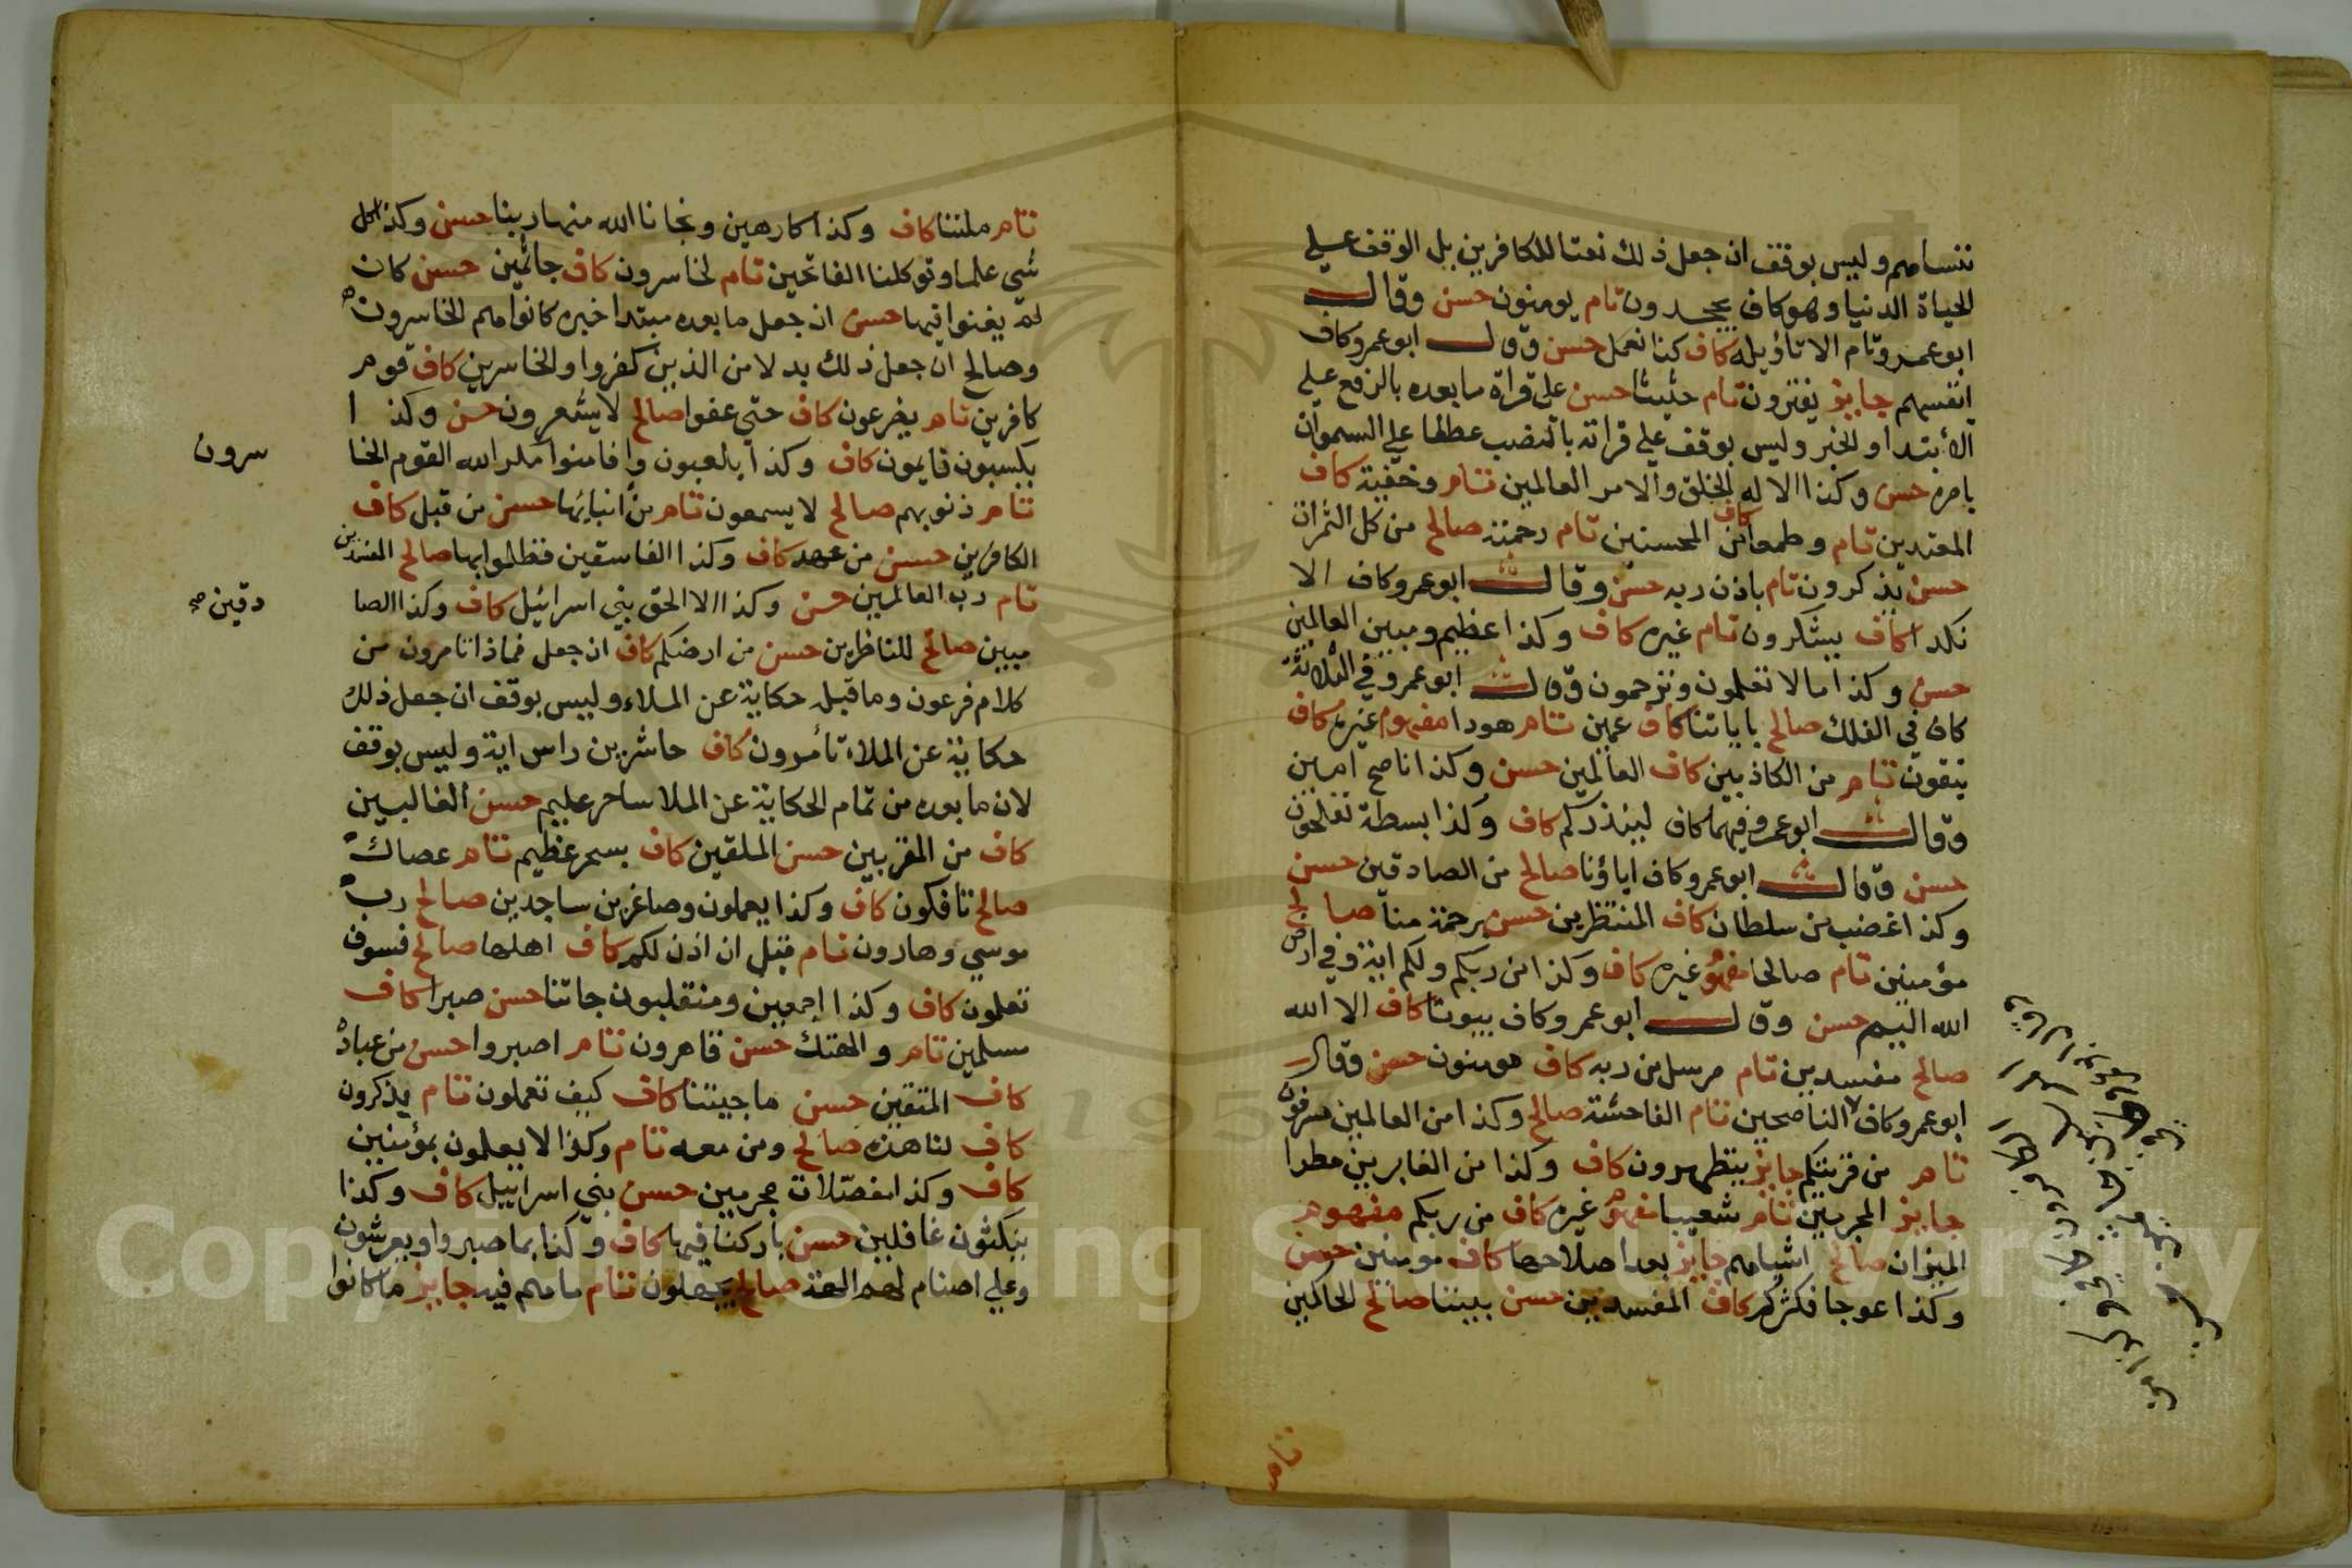 ننساهم وليس بوقف ان جعل ذلك نعتا للكافرين بل الوقف علي
الحياة الدنيا وهو كاف يجحدون تام يومنون حسن وقال
ابو عمرو تام الا تاؤيله كاف كنا نعمل حسن وقال ابو عمرو كاف
انفسهم جايز يفترون تام حثيثا حسن على قراة ما بعده بالرفع علي
الأبتدا والخبر وليس بوقف علي قراته بالنصب عطفا علي السموات
بامره حسن وكذا الا له الخلق والامر العالمين تام وخفية كاف
المعتدين تام وطمعا كاف من المحسنين تام رحمته صالح من كل الثمرات
حسن تذكرون تام باذن ربه حسن وقال ابو عمرو كاف الا
نكدا كاف يشكرون تام غيره كاف وكذا عظيم ومبين العالمين
حسن وكذا ما لا تعلمون وترحمون وقال ابو عمرو في الثلاثة
كاف في الفلك صالح باياتنا كاف عمين تام هودا مفهوم غيره كاف
تتقون تام من الكاذبين كاف العالمين حسن وكذا ناصح امين
وقال ابو عمرو فيهما كاف لينذركم كاف وكذا بسطة تفلحون
حسن وقال ابو عمرو كاف اباؤنا صالح من الصادقين حسن
وكذا غضب من سلطان كاف المنتظرين حسن برحمة منا صالح
مؤمنين تام صالحا مفهوم غيره كاف وكذا من ربكم ولكم اية وفي ارض
الله اليم حسن وقال ابو عمرو كاف بيوتا كاف الا الله
صالح مفسدين تام مرسل من ربه كاف مومنون حسن وقال
ابو عمرو كاف الناصحين تام الفاحشة صالح وكذا من العالمين مسرفون
تام من قريتكم جايز يتطهرون كاف وكذا من الغابرين مطرا
جايز المجرمين تام شعيبا مفهوم غيره كاف من ربكم مفهوم
الميزان صالح اشياهم جايز بعد اصلاحها كاف مومنين حسن
وكذا عوجا فكثركم كاف المفسدين حسن بيننا صالح الحاكمين
تام ملتنا كاف وكذا كارهين ونجانا الله منها ربنا حسن وكذا كل
شي علما وتوكلنا الفاتحين تام لخاسرون كاف جاثمين حسن كان
لم يغنوا فيها حسن ان جعل ما بعده مبتدا خبره كانوا هم الخاسرون
وصالح ان جعل ذلك بدلا من الذين كفروا والخاسرين كاف قوم
كافرين تام يضرعون كاف حتي عفوا صالح لا يشعرون حسن وكذا
يكسبون نايمون كاف وكذا يلعبون وافامنوا مكر الله القوم الخا
سرون
تام ذنوبهم صالح لا يسمعون تام من انبائها حسن من قبل كاف
الكافرين حسن من عهد كاف وكذا الفاسقين فظلموا بها صالح المفسدين
تام رب العالمين حسن وكذا الا الحق بني اسرائيل كاف وكذا الصا
دقين صح
مبين صالح للناظرين حسن من ارضكم كاف ان جعل فماذا تامرون من
كلام فرعون وما قبله حكاية عن الملاء وليس بوقف ان جعل ذلك
حكاية عن الملاء تأمرون كاف حاشرين راس اية وليس بوقف
لان ما بعده من تمام الحكاية عن الملا ساحر عليم حسن الغالبين
كاف من المقربين حسن الملقين كاف بسحر عظيم تام عصاك
صالح تافكون كاف وكذا يعملون وصاغرين ساجدين صالح رب
موسي وهارون تام قبل ان اذن لكم كاف اهلها صالح فسوف
تعلمون كاف وكذا اجمعين ومنقلبون جاتنا حسن صبرا كاف
مسلمين تام والهتك حسن قاهرون تام اصبروا حسن من عباده
كاف المتقين حسن ما جيتنا كاف كيف تعملون تام يذكرون
كاف لنا هذه صالح ومن معه تام وكذا لا يعلمون بمؤمنين
كاف وكذا مفصلات مجرمين حسن بني اسراييل كاف وكذا
ينكثون غافلين حسن باركنا فيها كاف وكذا بما صبروا ويعرشون
وعلي اصنام لهم الهة صالح تجهلون تام ما هم فيه جايز ما كانوا